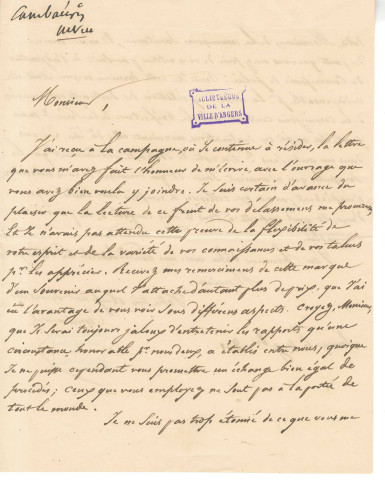 Cambacérès
Monsieur,
BIBLIOTHÈQUE
DE LA
VILLE D'ANGERS
J'ai reçu à la campagne, où je continue à résider, la lettre
que vous m'avez fait l'honneur de m'écrire, avec l'ouvrage que
vous avez bien voulu y joindre. Je suis certain d'avance du
plaisir que la lecture de ce fruit de vos délassemens me procurera
Et Je n'avais pas attendu cette preuve de la flexibilité de
votre esprit et de la variété de vos connaissances et de vos talens
pr. les apprécier. Recevez mes remercimens de cette marque
d'un souvenir auquel J'attache d'autant plus de prix, que J'ai
eu l'avantage de vous voir sous différens aspects. Croyez, Monsieur,
que Je serai toujours jaloux d'entretenir les rapports qu'une
circonstance honorable pr. nous deux, a établis entre nous, quoique
Je ne puisse cependant vous promettre un échange bien égal de
procédés; ceux que vous employez ne sont pas à la portée de
tout le monde.
Je ne suis pas trop étonné de ce que vous me